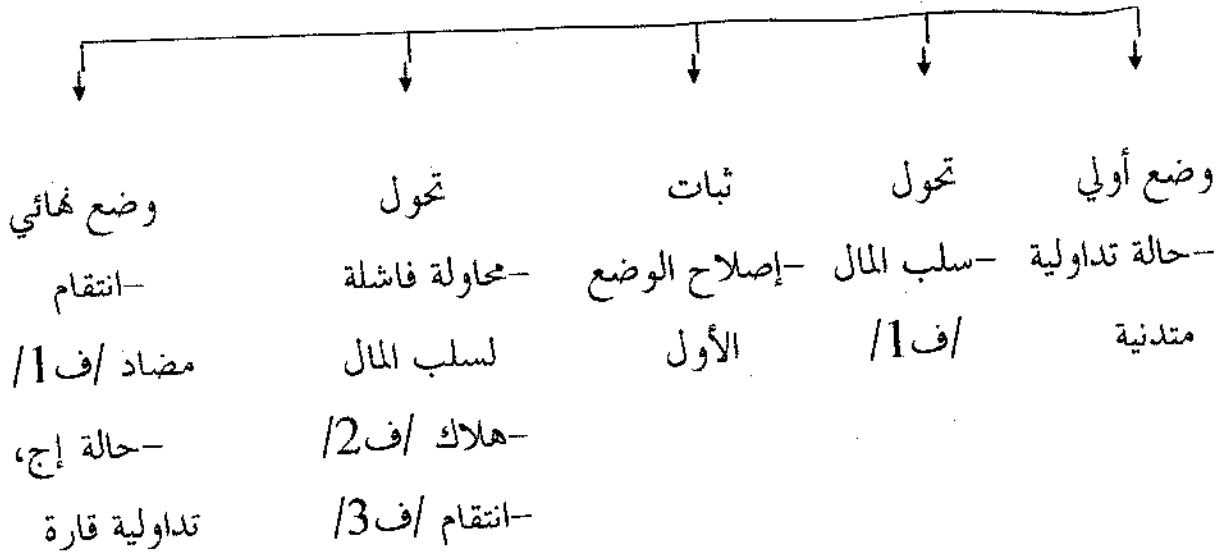 وضع أولي
-حالة تداولية
متدنية
تحول
-سلب المال
/ف1/
ثبات
-إصلاح الوضع
الأول
تحول
-محاولة فاشلة
لسلب المال
-هلاك /ف2/
-انتقام /ف3/
وضع نهائي
-انتقام
مضاد /ف1/
-حالة إج،
تداولية قارة